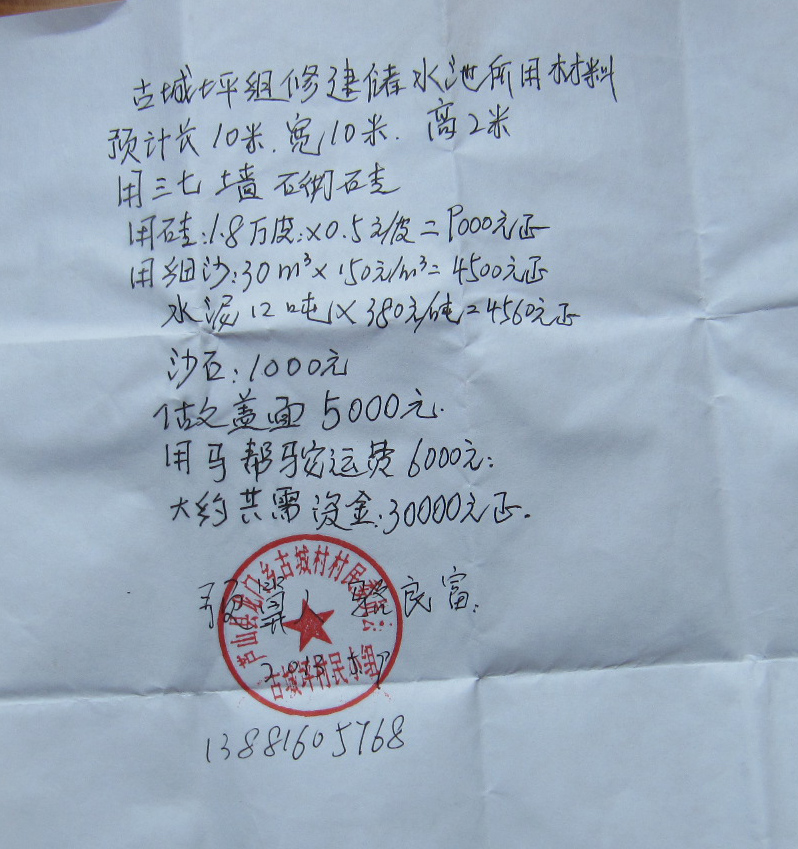 古城坪组修建储水池所用材料
预计长10米.宽10米.高2米
用三七墙石砌石圭
用硅:1.8万皮:×0.5元/皮=9000元正
用细沙:30m³×150元/m³=4500元正
水泥12吨×380元/吨=4560元正
沙石:1000元
做盖面5000元.
用马帮驼运费6000元:
大约共需资金:30000元正.
预算人 良富:
芦山县龙门乡古城村村民委员会
古城坪村民小组
2013.5.7
13881605768